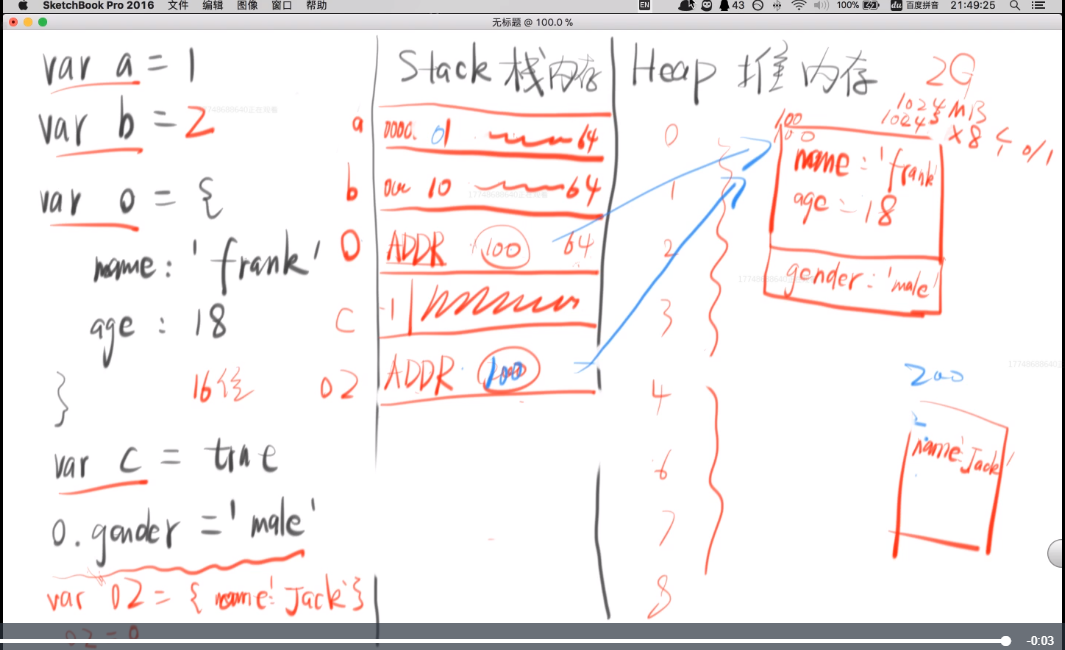 SketchBook Pro 2016 文件 编辑 图像 窗口 帮助
EN 43 100% du 百度拼音 21:49:25
无标题 @ 100.0 %
var a = 1
var b = 2
var o = {
name: 'frank'
age : 18
}
16位
var c = true
o.gender = 'male'
var o2 = { name: 'Jack' }
o2 = o
Stack 栈内存
a 01 64
b 10 64
O ADDR 100 64
C 1
o2 ADDR 100
Heap 堆内存
2G
1024MB
1024
x8 个 0/1
0
1
2
3
4
6
7
8
100
100
name: 'frank'
age = 18
gender: 'male'
200
name: 'Jack'
-0:03